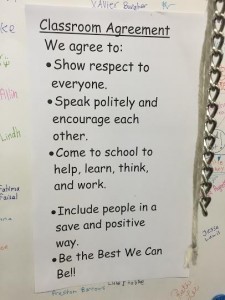 Xavier
Classroom Agreement
We agree to:
• Show respect to
everyone.
• Speak politely and
encourage each
other.
• Come to school to
help, learn, think,
and work.
• Include people in a
save and positive
way.
• Be the Best We Can
Be!!
Fatima
Faisal
Preston